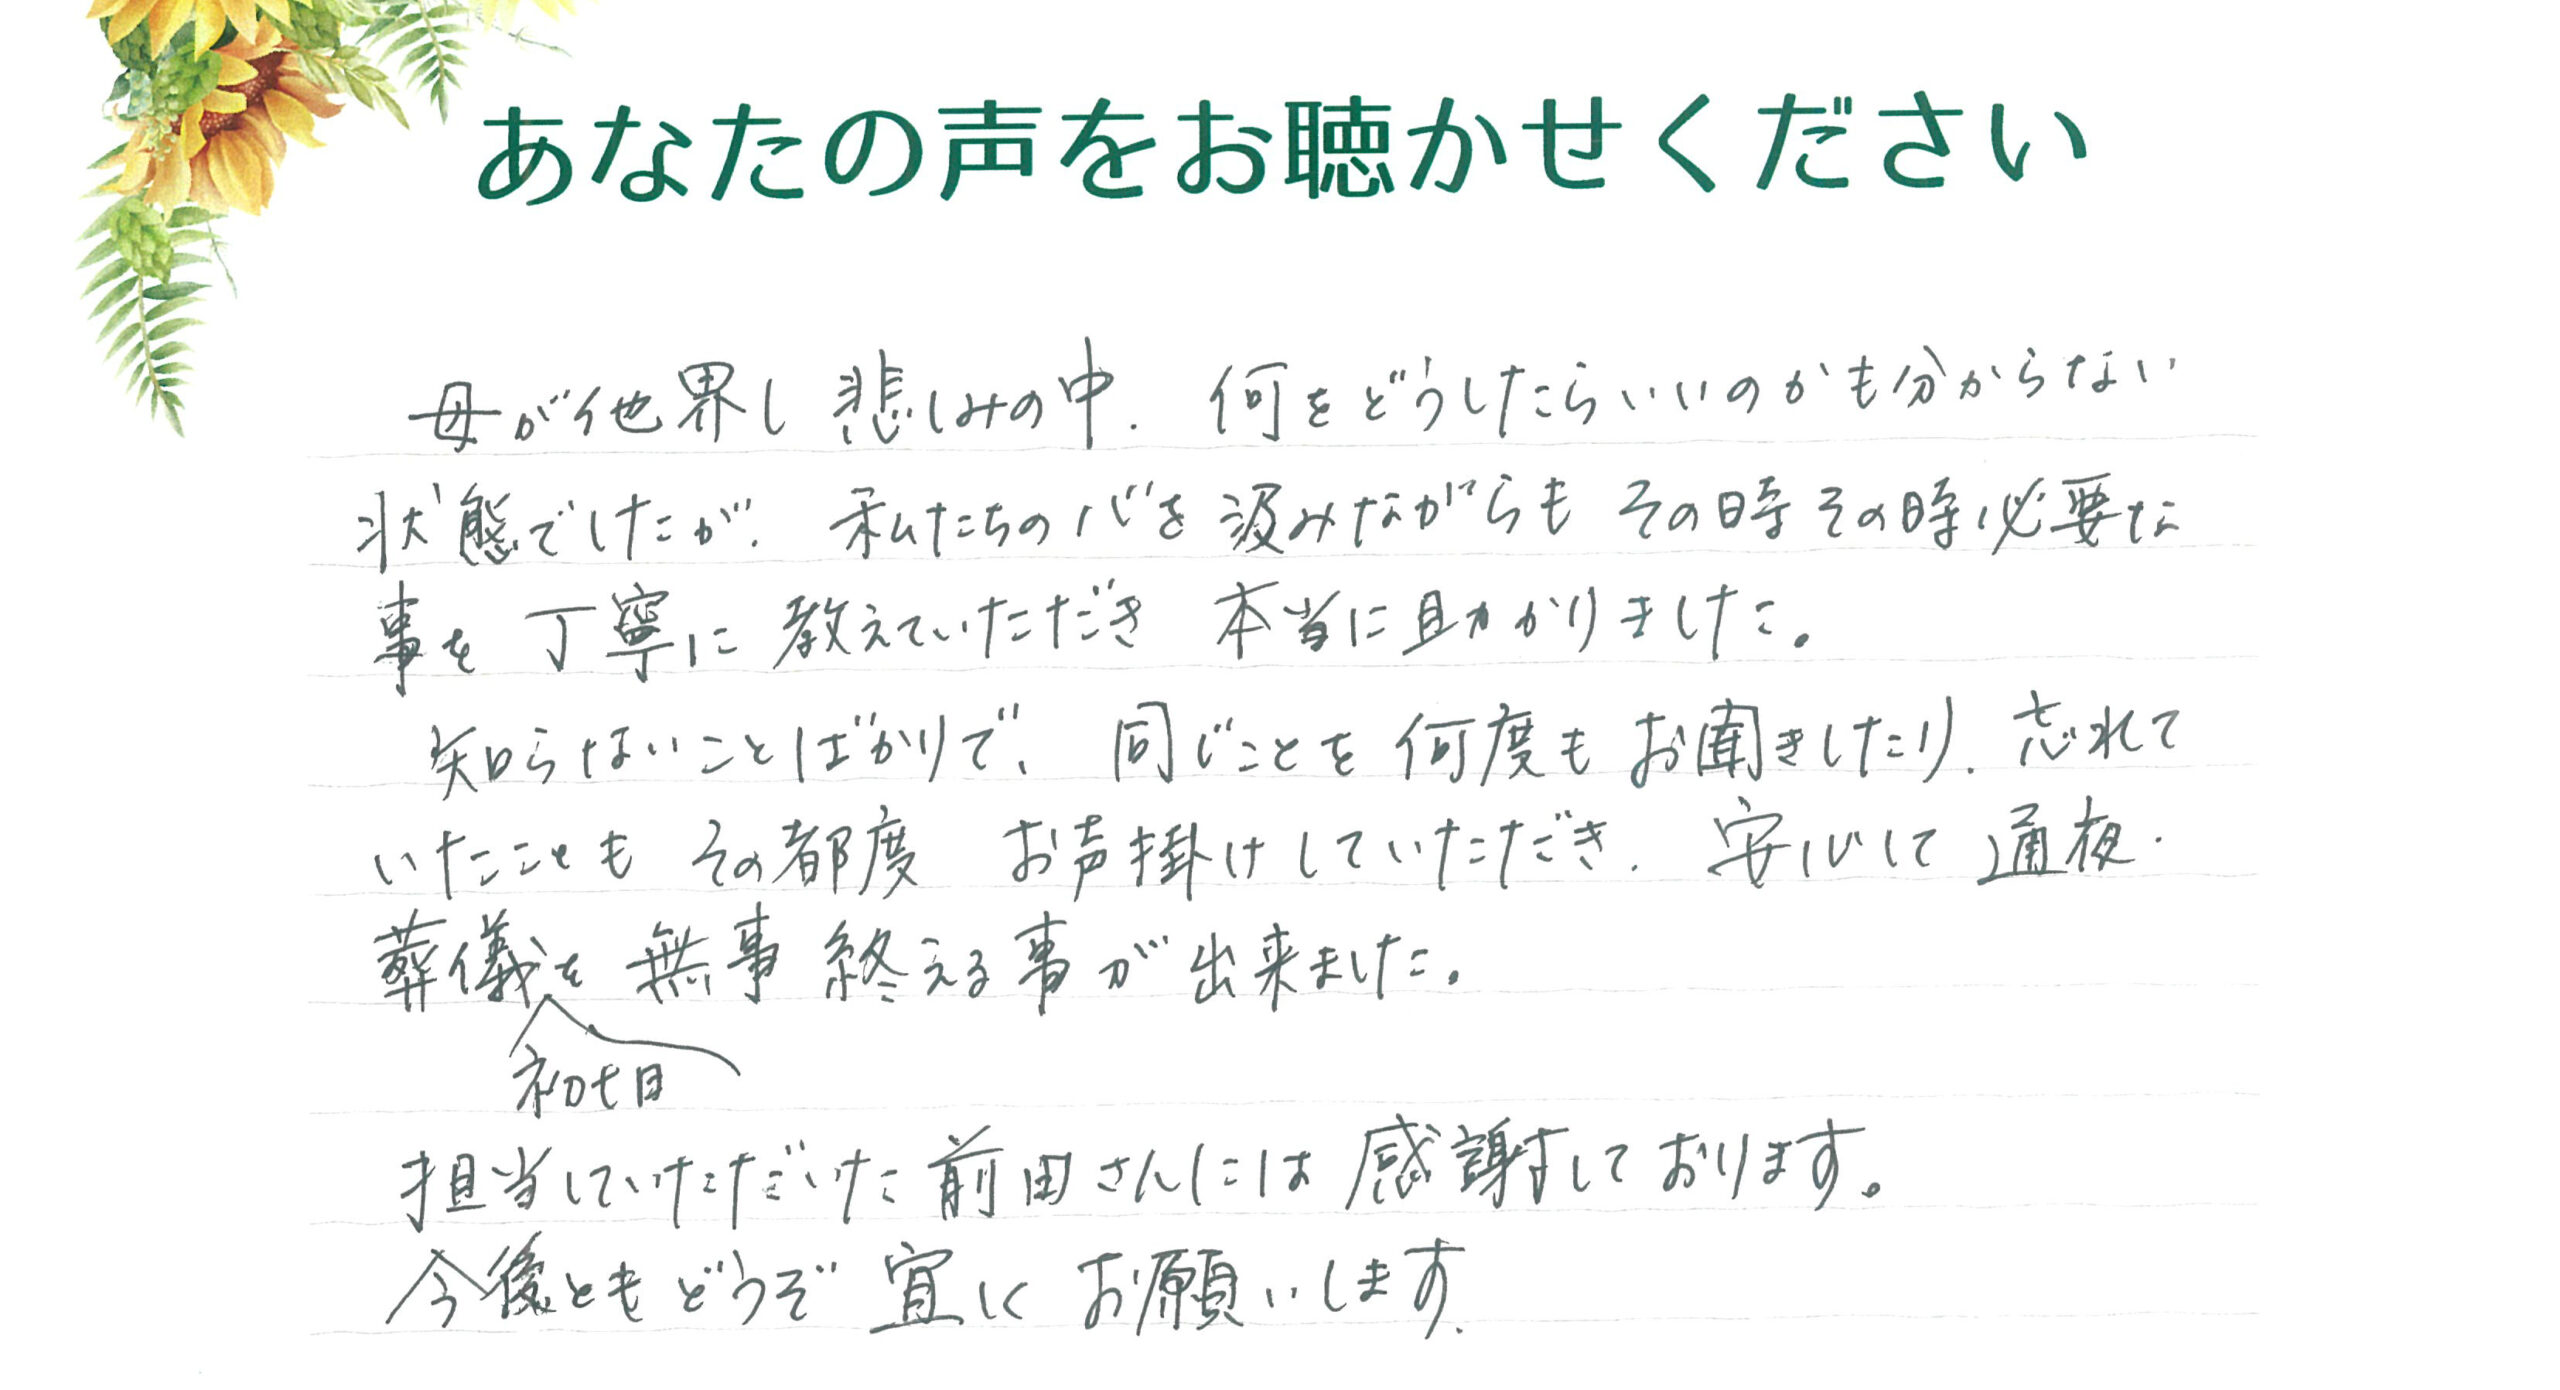 あなたの声をお聴かせください
母が他界し悲しみの中、何をどうしたらいいのかも分からない
状態でしたが、私たちの心を汲みながらも その時その時必要な
事を丁寧に教えていただき 本当に助かりました。
知らないことばかりで、同じことを何度もお聞きしたり、忘れて
いたことも その都度 お声掛けしていただき、安心して通夜・
葬儀を無事終える事が出来ました。
初七日
担当していただいた前田さんには感謝しております。
今後ともどうぞ宜しくお願いします。